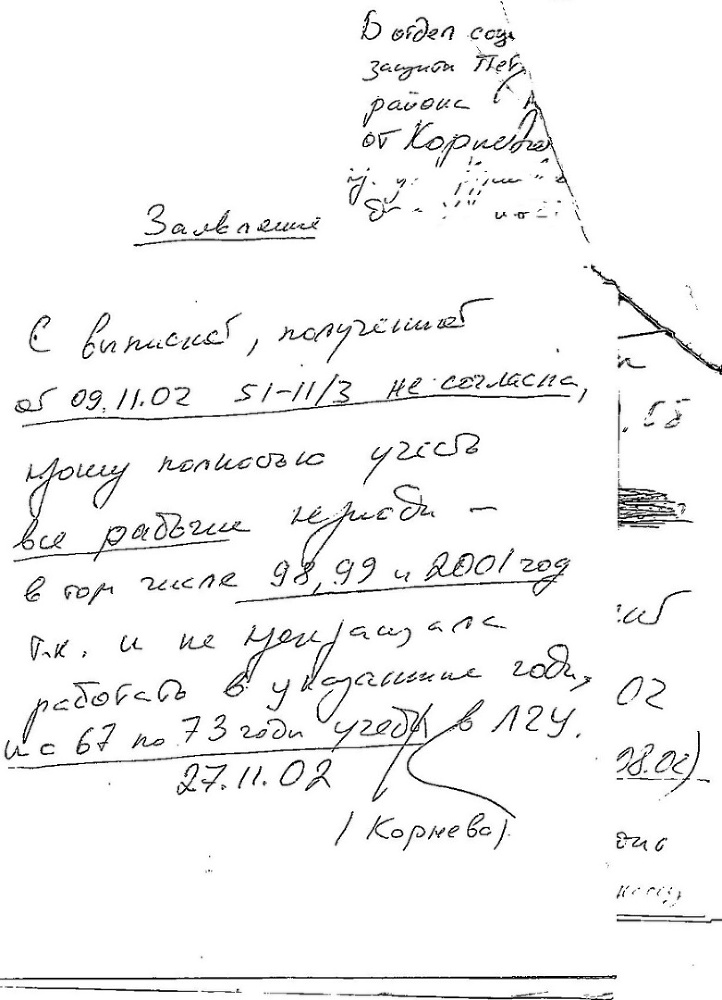 В отдел соц
защиты Пет
района
от Корнево
Заявление
С выпиской, полученной
от 09.11.02 51-11/3 не согласна,
прошу полностью учесть
все рабочие периоды –
в том числе 98, 99 и 2001 год
т.к. и не прекращала
работать в указанные годы,
и с 67 по 73 годы учебы в ЛГУ.
27.11.02
/Корнева/
02
98.02)